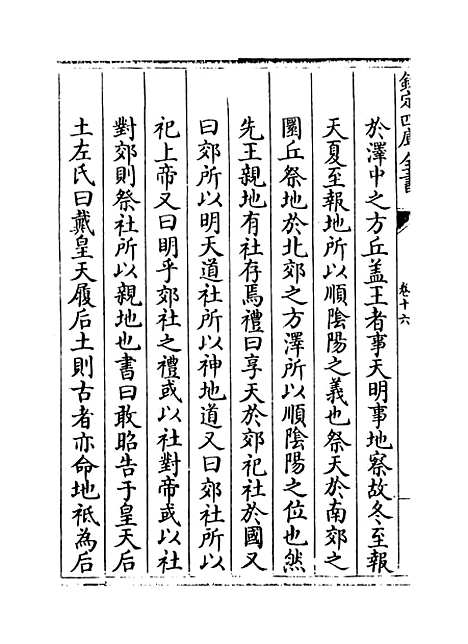 欽定四庫全書
卷十六
於澤中之方丘盖王者事天明事地察故冬至報
天夏至報地所以順陰陽之義也祭天於南郊之
圜丘祭地於北郊之方澤所以順陰陽之位也然
先王親地有社存焉禮曰享天於郊祀社於國又
曰郊所以明天道社所以神地道又曰郊社所以
祀上帝又曰明乎郊社之禮或以社對帝或以社
對郊則祭社所以親地也書曰敢昭告于皇天后
土左氏曰戴皇天履后土則古者亦命地祗為后